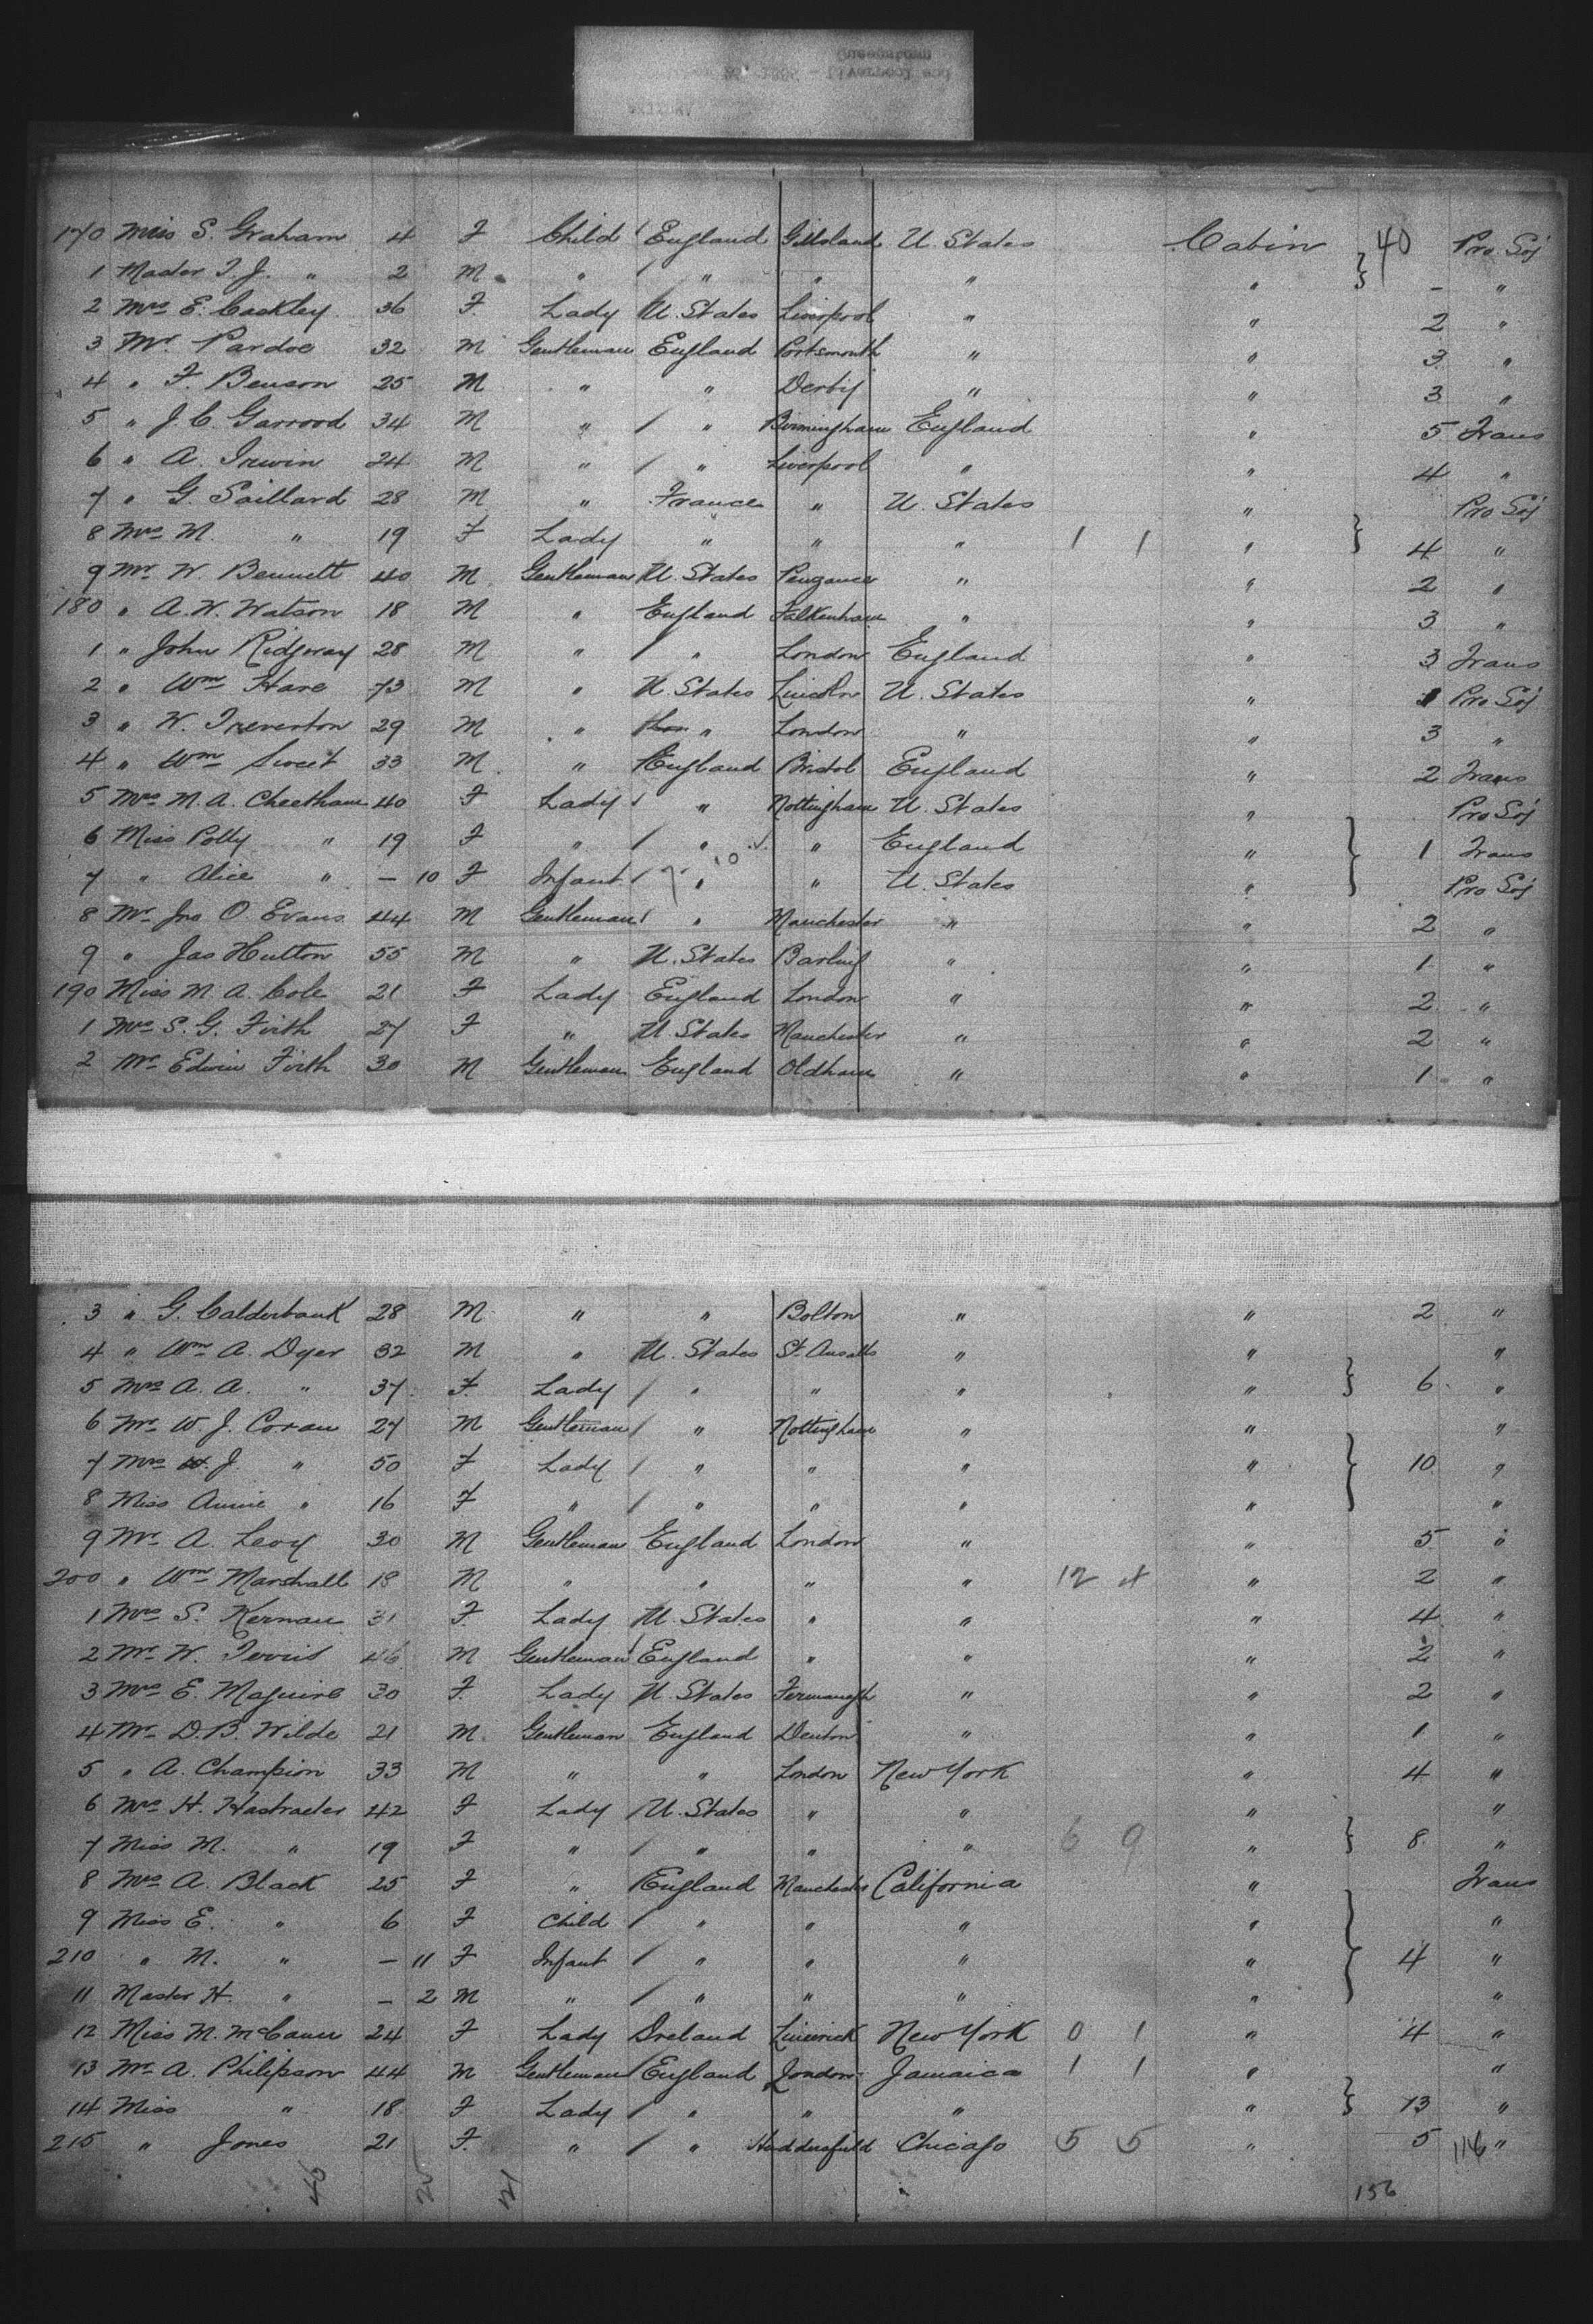 Queenstown
1896 - Liverpool and
170 Miss S. Graham 4 F Child England Gillsland U. States Cabin } 40 Pro Soj
1 Master T. J. " 2 M " / " " " " - "
2 Mrs E. Cackley 36 F Lady U. States Liverpool " " 2 "
3 Mr. Pardoe 32 M Gentleman England Portsmouth " " 3 "
4 " F. Benson 25 M " " Derby " " 3 "
5 " J. C. Garrood 34 M " / " Birmingham England " 5 Trans
6 " A. Irwin 24 M " / " Liverpool " " 4 "
7 " G. Saillard 28 M " France " U. States " Pro Soj
8 Mrs M. " 19 F Lady " " " 1 1 " } 4 "
9 Mr. W. Bennett 40 M Gentleman U. States Penzance " " 2 "
180 " A. W. Watson 18 M " England Falkenham " " 3 "
1 " John Ridgway 28 M " / " London England " 3 Trans
2 " Wm Hare 73 M " U. States Lincoln U. States " 1 Pro Soj
3 " W. Treverton 29 M " " London " " 3 "
4 " Wm Sweet 33 M " England Bristol England " 2 Trans
5 Mrs M. A. Cheetham 40 F Lady / " Nottingham U. States " Pro Soj
6 Miss Polly " 19 F " / " " England " } 1 Trans
7 " Alice " - 10 F Infant / " " U. States " Pro Soj
8 Mr. Jno O. Evans 44 M Gentleman / " Manchester " " 2 "
9 " Jas Hutton 55 M " U. States Barling " " 1 "
190 Miss M. A. Cole 21 F Lady England London " " 2 "
1 Mrs S. G. Firth 27 F " U. States Manchester " " 2 "
2 Mr. Edwin Firth 30 M Gentleman England Oldham " " 1 "
3 " G. Calderbank 28 M " " Bolton " " 2 "
4 " Wm A. Dyer 32 M " U. States St. Ausalls " " "
5 Mrs A. A. " 37 F. Lady / " " " " } 6 "
6 Mr. W. J. Coran 27 M Gentleman / " Nottingham " " "
7 Mrs H. J. " 50 F Lady / " " " " } 10 "
8 Miss Annie " 16 F " / " " " " "
9 Mr. A. Levy 30 M Gentleman England London " " 5 "
200 " Wm Marshall 18 M " " " " 12 4 " 2 "
1 Mrs S. Kernan 31 F. Lady U. States " " " 4 "
2 Mr. W. Jervis 46 M Gentleman / England " " " 2 "
3 Mrs E. Maguire 30 F. Lady U. States Fermanagh " " 2 "
4 Mr. D. B. Wilde 21 M. Gentleman England Denton " " 1 "
5 " A. Champion 33 M " " London New York " 4 "
6 Mrs H. Hastraeter 42 F Lady U. States " " " "
7 Miss M. " 19 F " / " " " 6 9 " } 8 "
8 Mrs A. Black 25 F " England Manchester California " Trans
9 Miss E. " 6 F Child / " " " " "
210 " M. " - 11 F Infant / " " " " } 4 "
11 Master H. " - 2 M " / " " " " "
12 Miss M. McCann 24 F Lady Ireland Limerick New York 0 1 " 4 "
13 Mr. A. Philipson 44 M Gentleman / England London Jamaica 1 1 " "
14 Miss " 18 F Lady / " " " " } 13 "
215 " Jones 21 F. " / " Huddersfield Chicago 5 5 " 5 116 "
45 25 21 156